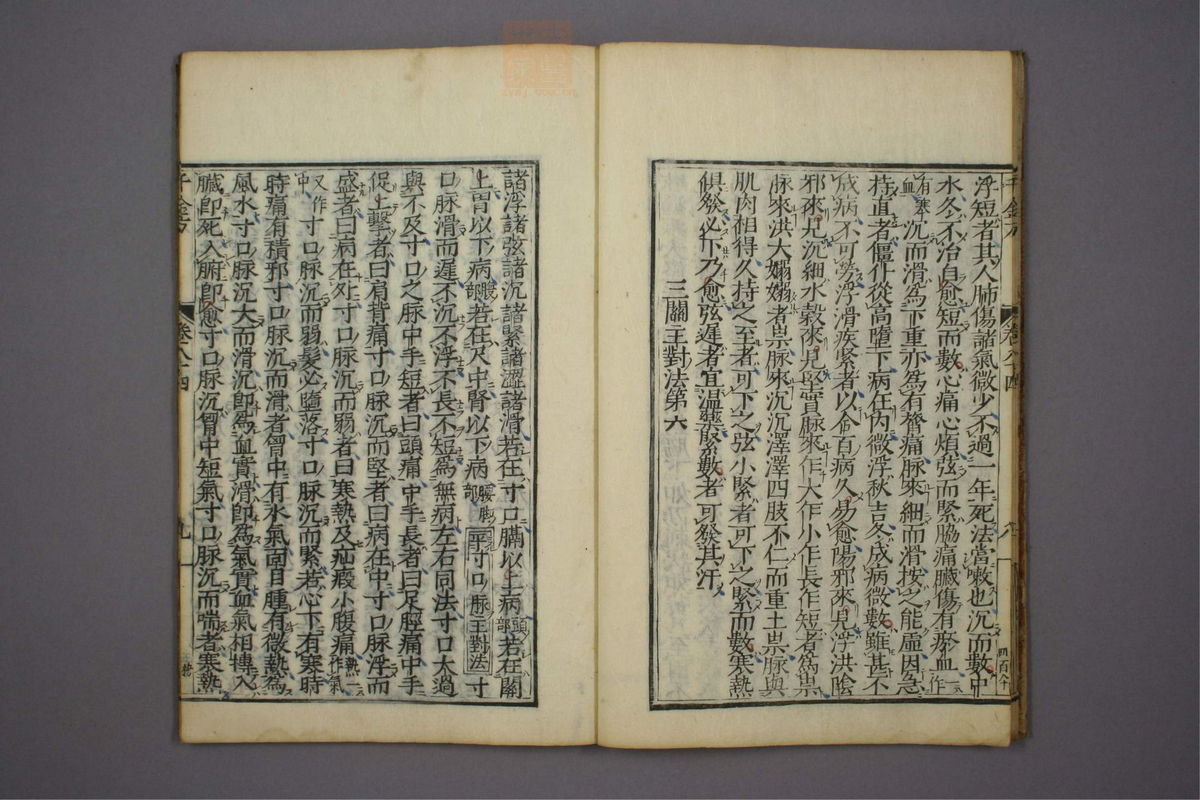 浮短者其人肺傷諸氣微少不過一年死法當嗽也沉而數中
水冬不治自愈短而數心痛心煩弦而緊脇痛臟傷有瘀血一作
有寒血沉而滑爲下重亦爲有膂痛脉來細而滑按之能虛因急
持直者僵仆從高墮下病在内微浮秋吉冬成病微數雖甚不
成病不可勞浮滑疾緊者以合百病久易愈陽邪來見浮洪陰
邪來見沉細水穀來見堅實脉來乍大乍小乍長乍短者爲祟
脉來洪大嫋嫋者祟脉來沉沉澤澤四肢不仁而重土祟脉與
肌肉相得久持之至者可下之弦小緊者可下之緊而數寒熱
俱發必下乃愈弦遲者宜溫藥緊數者可發其汗
三關主對法第六
諸浮諸弦諸沉諸緊諸澀諸滑若在寸口膈以上病頭部若在關
上胃以下病腹部若在尺中腎以下病腰脚部平寸口脉主對法寸
口脉滑而遲不沉不浮不長不短爲無病左右同法寸口太過
與不及寸口之脉中手短者曰頭痛中手長者曰足脛痛中手
促上擊者曰肩背痛寸口脉沉而堅者曰病在中寸口脉浮而
盛者曰病在外寸口脉沉而弱者曰寒熱及疝瘕小腹痛熱一作氣
又作中寸口脉沉而弱髮必墮落寸口脉沉而緊若心下有寒時
時痛有積邪寸口脉沉而滑者胷中有水氣面目腫有微熱爲
風水寸口脉沉大而滑沉即爲血實滑即爲氣實血氣相搏入
臟即死入腑即愈寸口脉沉胷中短氣寸口脉沉而喘者寒熱
千金方
卷八十四
九